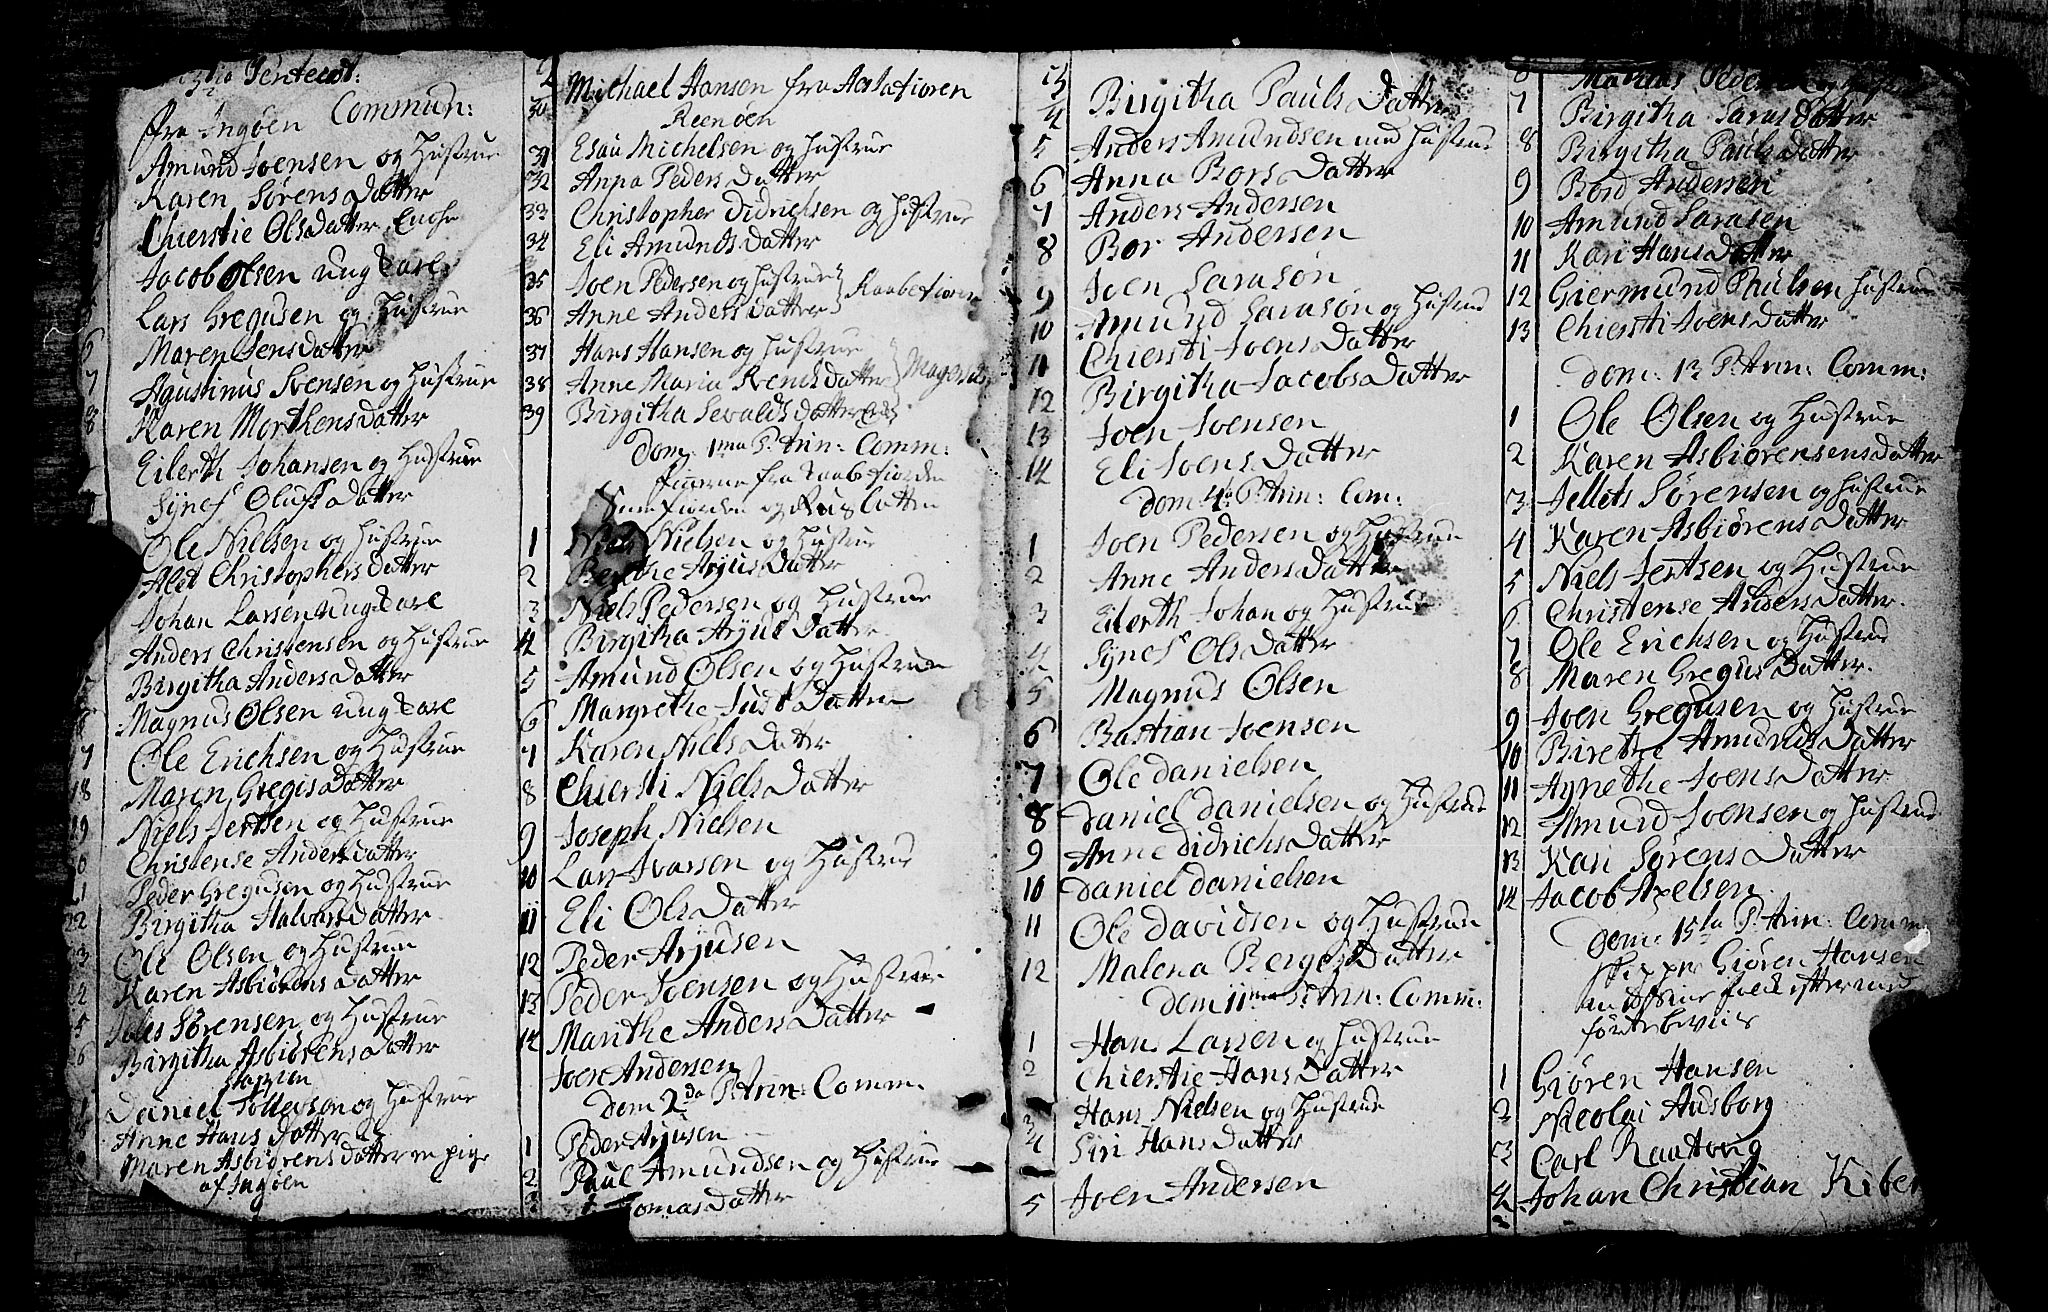 3tia Pentecot:
fra Ingøen Commun:
Amund Joensen og Hustrue
Karen Sørens Datter
3 Chierstie Ols Datter Enche
Jacob Olsen ung Carl
5 Lars Gregusen og Hustrue
6 Maren Jens datter
7 Agustinus Svensen og Hustrue
8 Karen Morthens datter
Eilerth Johansen og Hustrue
Synof Olufs Datter
Ole Nielsen og Hustrue
Alet Christophers datter
Johan Larsen ung Carl
Anders Christensen og Hustrue
5 Birgitha Anders datter
6 Magnus Olsen ung Carl
7 Ole Erichsen og Hustrue
18 Maren Gregis Datter
19 Niels Jertsen og Hustrue
20 Christense Anders datter
21 Peder Gregusen og Hustrue
22 Birgitha Halvors Datter
23 Ole Olsen og Hustrue
24 Karen Asbiørens Datter
25 Joles Sørensen og Hustrue
26 Birgitha Asbiørens Datter
Stappen
Daniel Tollefsen og Hustrue
8 Anne Hans datter
Maren Asbiørens datter en pige
af Ingøen
Michael Hansen fra
30 Reenøen
31 Esau Michelsen og Hustrue
32 Anna Peders Datter
33 Christopher Didrichsen og Hustrue
34 Eli Amunds datter
35 Joen Pedersen og Hustrue
36 Anne Anders datter
37 Hans Hansen og Hustrue
38 Anne Maria Svends datter
39 Birgitha Sewalds datter
Dom: 1ma P: Trin: Comm:
finerne fra
og
1 Niels Nielsen og Hustrue
2 Berethe Arjus Datter
3 Niels Pedersen og Hustrue
4 Birgitha Arjus Datter
5 Amund Olsen og Hustrue
6 Margrethe Just Datter
7 Karen Niels Datter
8 Chiersti Niels Datter
9 Joseph Nielsen
10 Lars Ivarsen og Hustrue
11 Eli Ols Datter
12 Peder Arjusen
13 Peder Joensen og Hustrue
14 Marithe Anders Datter
Joen Andersen
Dom 2da P: Trin: Comm.
1 Peder Arjusen
2 Paul Amundsen og Hustrue
3 Tomas Datter
4 Birgitha Pauls Datter
5 Anders Amundsen med Hustrue
6 Anna Bors Datter
7 Anders Andersen
8 Bor Andersen
9 Joen Sarasøn
10 Amund Sarasøn og Hustrue
11 Chiersti Joens Datter
12 Birgitha Jacobs Datter
13 Joen Joensen
14 Eli Joens Datter
Dom: 4ta P: Trin: Com:
1 Joen Pedersen og Hustrue
2 Anne Anders Datter
3 Eilerth Johan og Hustrue
4 Synof Ols Datter
5 Magnus Olsen
6 Bastian Joensen
7 Ole Danielsen
8 Daniel Danielsen og Hustrue
9 Anne Didrichs Datter
10 Daniel Danielsen
11 Ole Davidsen og Hustrue
12 Malena Berges Datter
Dom 11ma P: Trin: Comm:
1 Hans Larsen og Hustrue
2 Chierstie Hans Datter
3 Hans Nielsen og Hustrue
4 Siri Hans Datter
5 Joen Andersen
6 Mathias Pedersen og Hustrue
7 Birgitha Saras Datter
8 Birgitha Pauls Datter
9 Bord Andersen
10 Amund Sarasen
11 Kari Hans Datter
12 Giermund Paulsen Hustrue
13 Chiersti Joens Datter
Dom: 13 P: Trin: Comm:
1 Ole Olsen og Hustrue
2 Karen Asbiørensens datter
3 Jellets Sørensen og Hustrue
4 Karen Asbiørens Datter
5 Niels Jertsen og Hustrue
6 Christense Anders Datter.
7 Ole Erichsen og Hustrue
8 Maren Gregus Datter.
9 Joen Gregusen og Hustrue
10 Birethe Amunds Datter
11 Agnethe Joens Datter
12 Amund Joensen og Hustrue
13 Kari Sørens Datter
14 Jacob Axelsen
Dom: 15ta P: Trin: Comm
Skipper Giøren Hansen
1 Giøren Hansen
2 Nicolai Ausborg
3 Carl Raatvig
4 Johan Christian Kiber